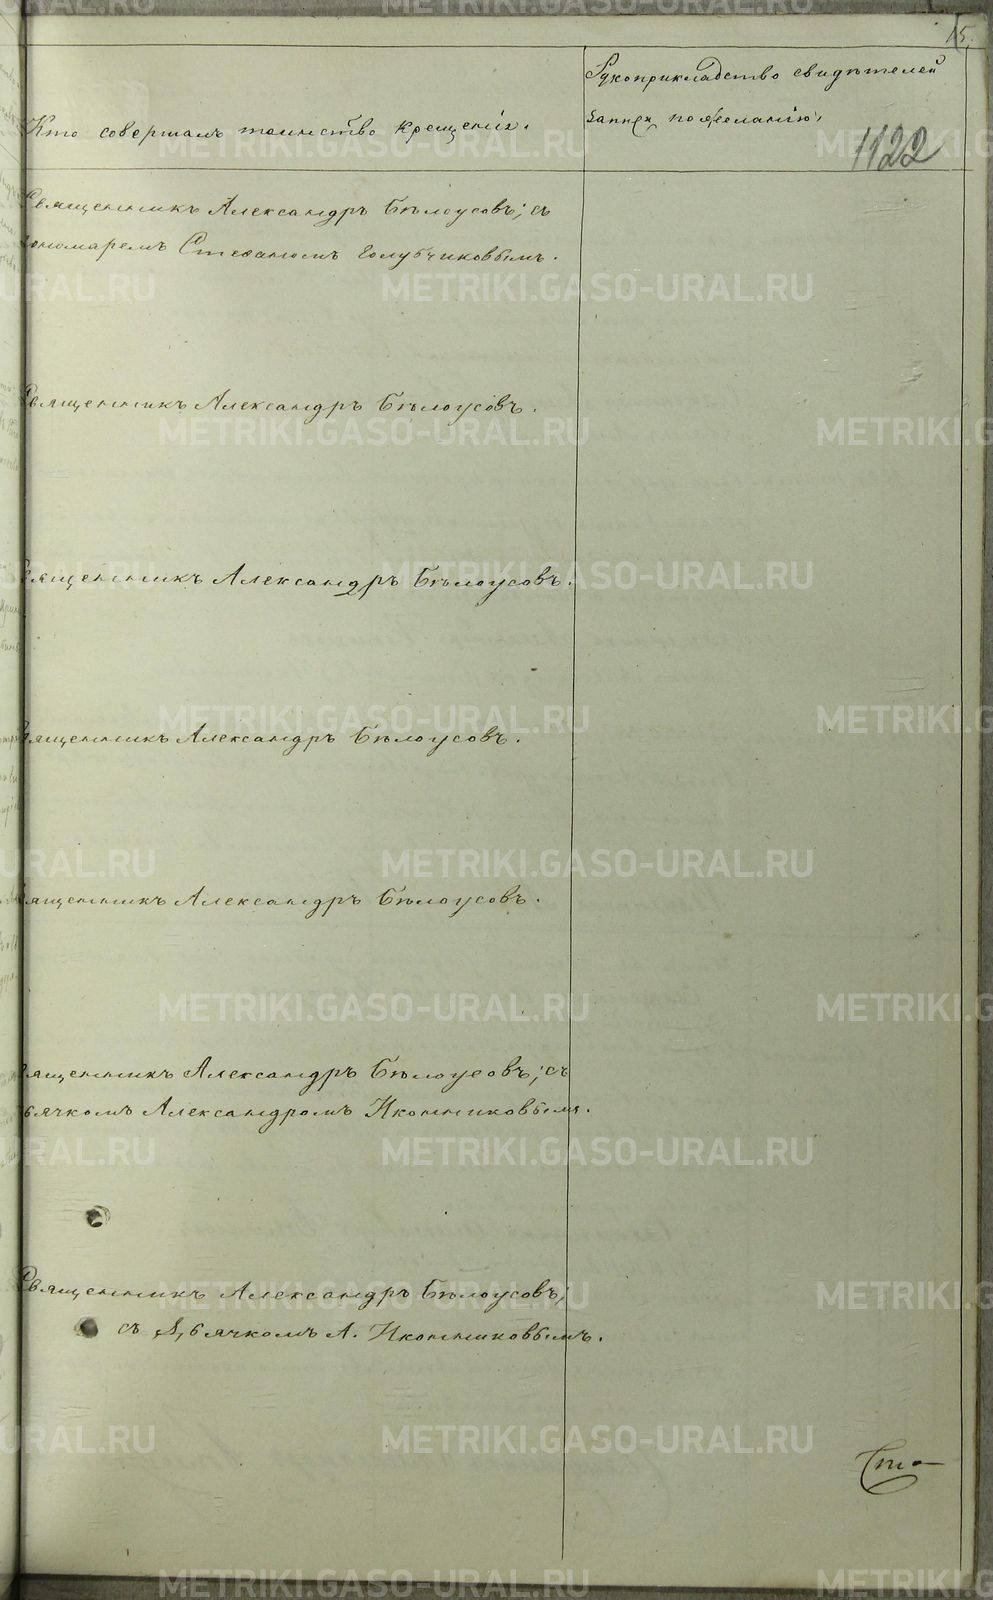 15.
Кто совершалъ таинство крещенія.
Рукоприкладство свидѣтелей
записи по желанію.
1122
Священникъ Александръ Бѣлоусовъ; съ
пономаремъ Стефаномъ Голубчиковымъ.
Священникъ Александръ Бѣлоусовъ.
Священникъ Александръ Бѣлоусовъ.
Священникъ Александръ Бѣлоусовъ.
Священникъ Александръ Бѣлоусовъ.
Священникъ Александръ Бѣлоусовъ; съ
дьячкомъ Александромъ Иконниковымъ.
Священникъ Александръ Бѣлоусовъ;
съ дьячкомъ А. Иконниковымъ.
METRIKI.GASO-URAL.RU